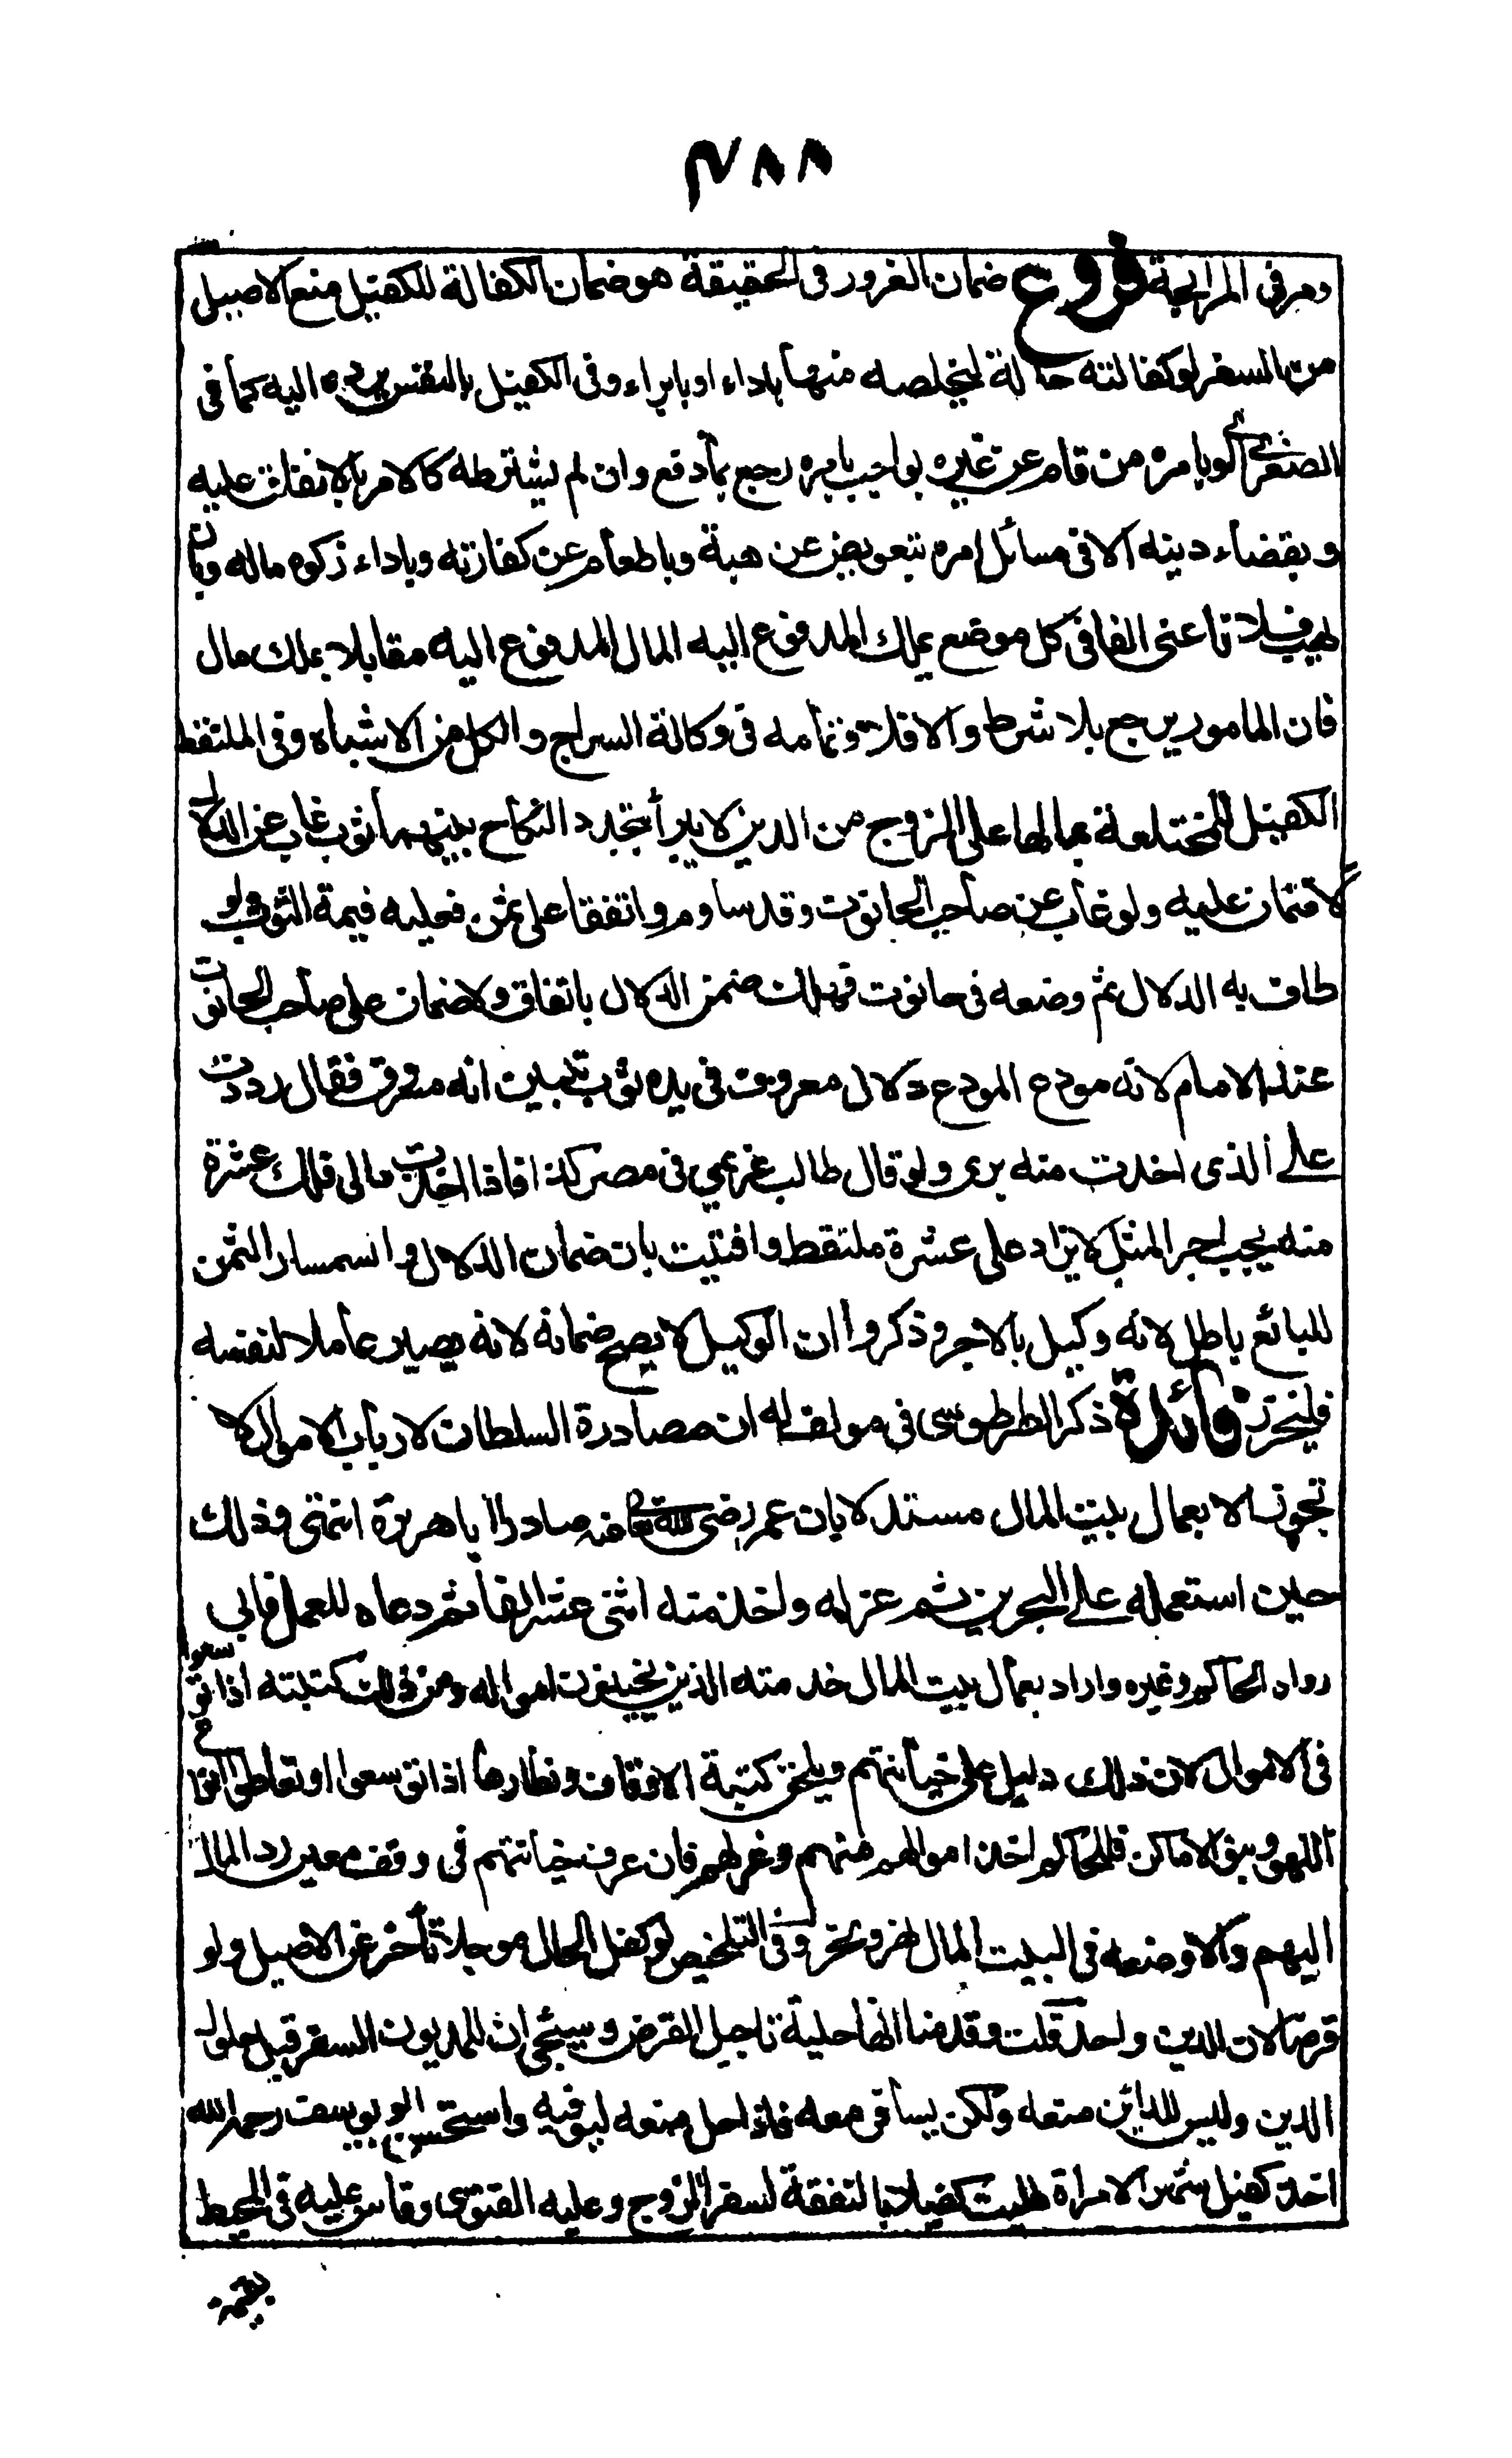 ٣٨٨
ومر في المرابحة فروع ضمان الغرور في الحقيقة هو ضمان الكفالة للكفيل منع الاصيل
من السفر لو كفالته حالة ليخلصه منها باداء او بابراء وفي الكفيل بالنفس يرده اليه كما في
الصغرى اي لو بامره من قام عن غيره بواجب بامره رجع بما دفع وان لم يشترطه كالامر بالانفاق عليه
وبقضاء دينه الا في مسائل امره بتعويض عن هبة وباطعام عن كفارته وباداء زكوة ماله وبان
يهب فلانا عني الفا في كل موضع يملك المدفوع اليه المال المدفوع اليه مقابلا بملك مال
فان المامور يرجع بلا شرط والا فلا وتمامه في وكالة السراج والكل من الاشباه وفي الملتقط
الكفيل للمختلعة بمالها على الزوج من الدين لا يبرأ بتجدد النكاح بينهما ثوب غاب عن الدلال
لا ضمان عليه ولو غاب عن صاحب الحانوت وقد ساوم واتفقا على ثمن فعليه قيمة الثوب ولو
طاف به الدلال ثم وضعه في حانوت فهلك ضمن الدلال باتفاق ولا ضمان على صاحب الحانوت
عند الامام لانه مودع المودع دلال معروف في يده ثوب تبين انه مسروق فقال رددت
على الذي اخذت منه برئ ولو قال طالب غريمي في مصر كذا فاذا اخذت مالي فلك عشرة
منه يجب اجر المثل لا يزاد على عشرة ملتقط وافتيت بان ضمان الدلال والسمسار الثمن
للبائع باطل لانه وكيل بالاجر وذكروا ان الوكيل لا يصح ضمانه لانه يصير عاملا لنفسه
فليحرر فائدة ذكر الطرطوسي في مولف له ان مصادرة السلطان لارباب الاموال لا
تجوز الا بعمال بيت المال مستدلا بان عمر رضي الله تعا عنه صادر ابا هريرة انتهى وذلك
حين استعمله على البحرين ثم عزله واخذ منه اثنى عشر الفا ثم دعاه للعمل فابى
رواه الحاكم وغيره واراد بعمال بيت المال خدمته الذين يجبون امواله ومن ذلك كتبته اذا توسعوا
في الاموال لان ذلك دليل على خيانتهم ويلحق كتبة الاوقاف ونظارها اذا توسعوا او تعاطوا انواع
اللهو وبنو الاماكن فللحاكم اخذ اموالهم منهم وعزلهم فان عرف خيانتهم في وقف معين رد المال
اليهم والا وضعه في البيت المال نهر وبحر وفي التلخيص لو كفل الحال موجلا تأخر عن الاصيل ولو
قرضا لان الدين واحد قلت وقدمنا انها حيلة تاجيل القرض وسيجئ ان للمديون السفر قبل حلول
الدين وليس للدائن منعه ولكن يسافر معه فاذا حل منعه ليوفيه واستحسن ابو يوسف رحمه الله
اخذ كفيل شهر لامراة طلبت كفيلا بالنفقة لسفر الزوج وعليه الفتوى وقاس عليه في المحيط
بقية